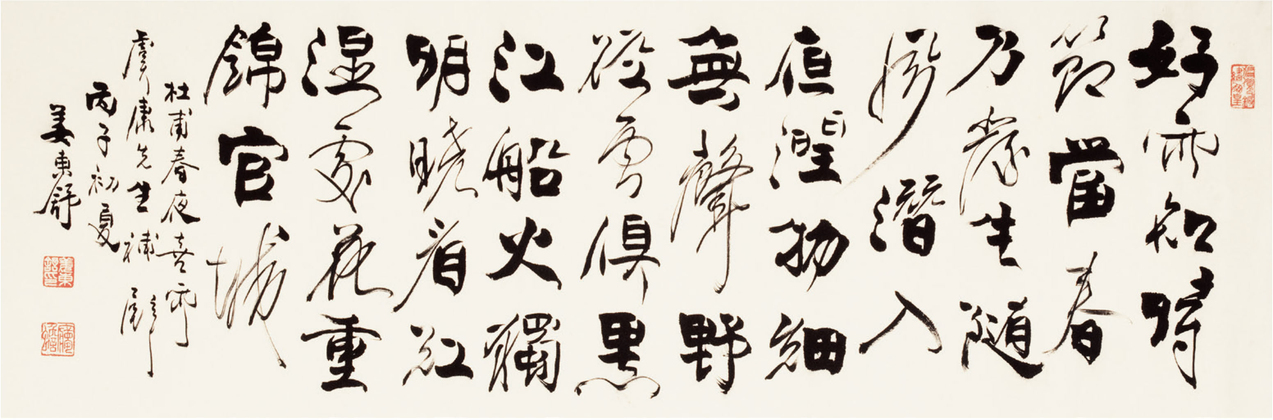 好雨知時
節當春
乃發生隨
風潛入
夜潤物細
無聲野
徑雲俱黑
江船火獨
明曉看紅
湿處花重
錦官城
杜甫春夜喜雨
先生補壁
丙子初夏
姜東舒